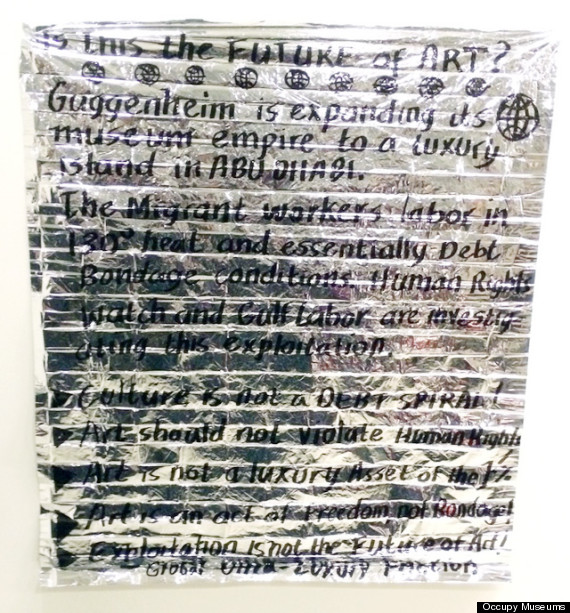 Is this the FUTURE of ART?
Guggenheim is expanding its
museum empire to a luxury
island in ABU DHABI.
The Migrant workers labor in
130° heat and essentially Debt
Bondage conditions. Human Rights
Watch and Gulf Labor are investig-
ating this exploitation.
Culture is not a DEBT SPIRAL!
Art should not violate Human Rights!
Art is not a luxury Asset of the 1%
Art is an act of Freedom not Bondage!
Exploitation is not the Future of Art!
Global Ultra-Luxury Faction
Occupy Museums